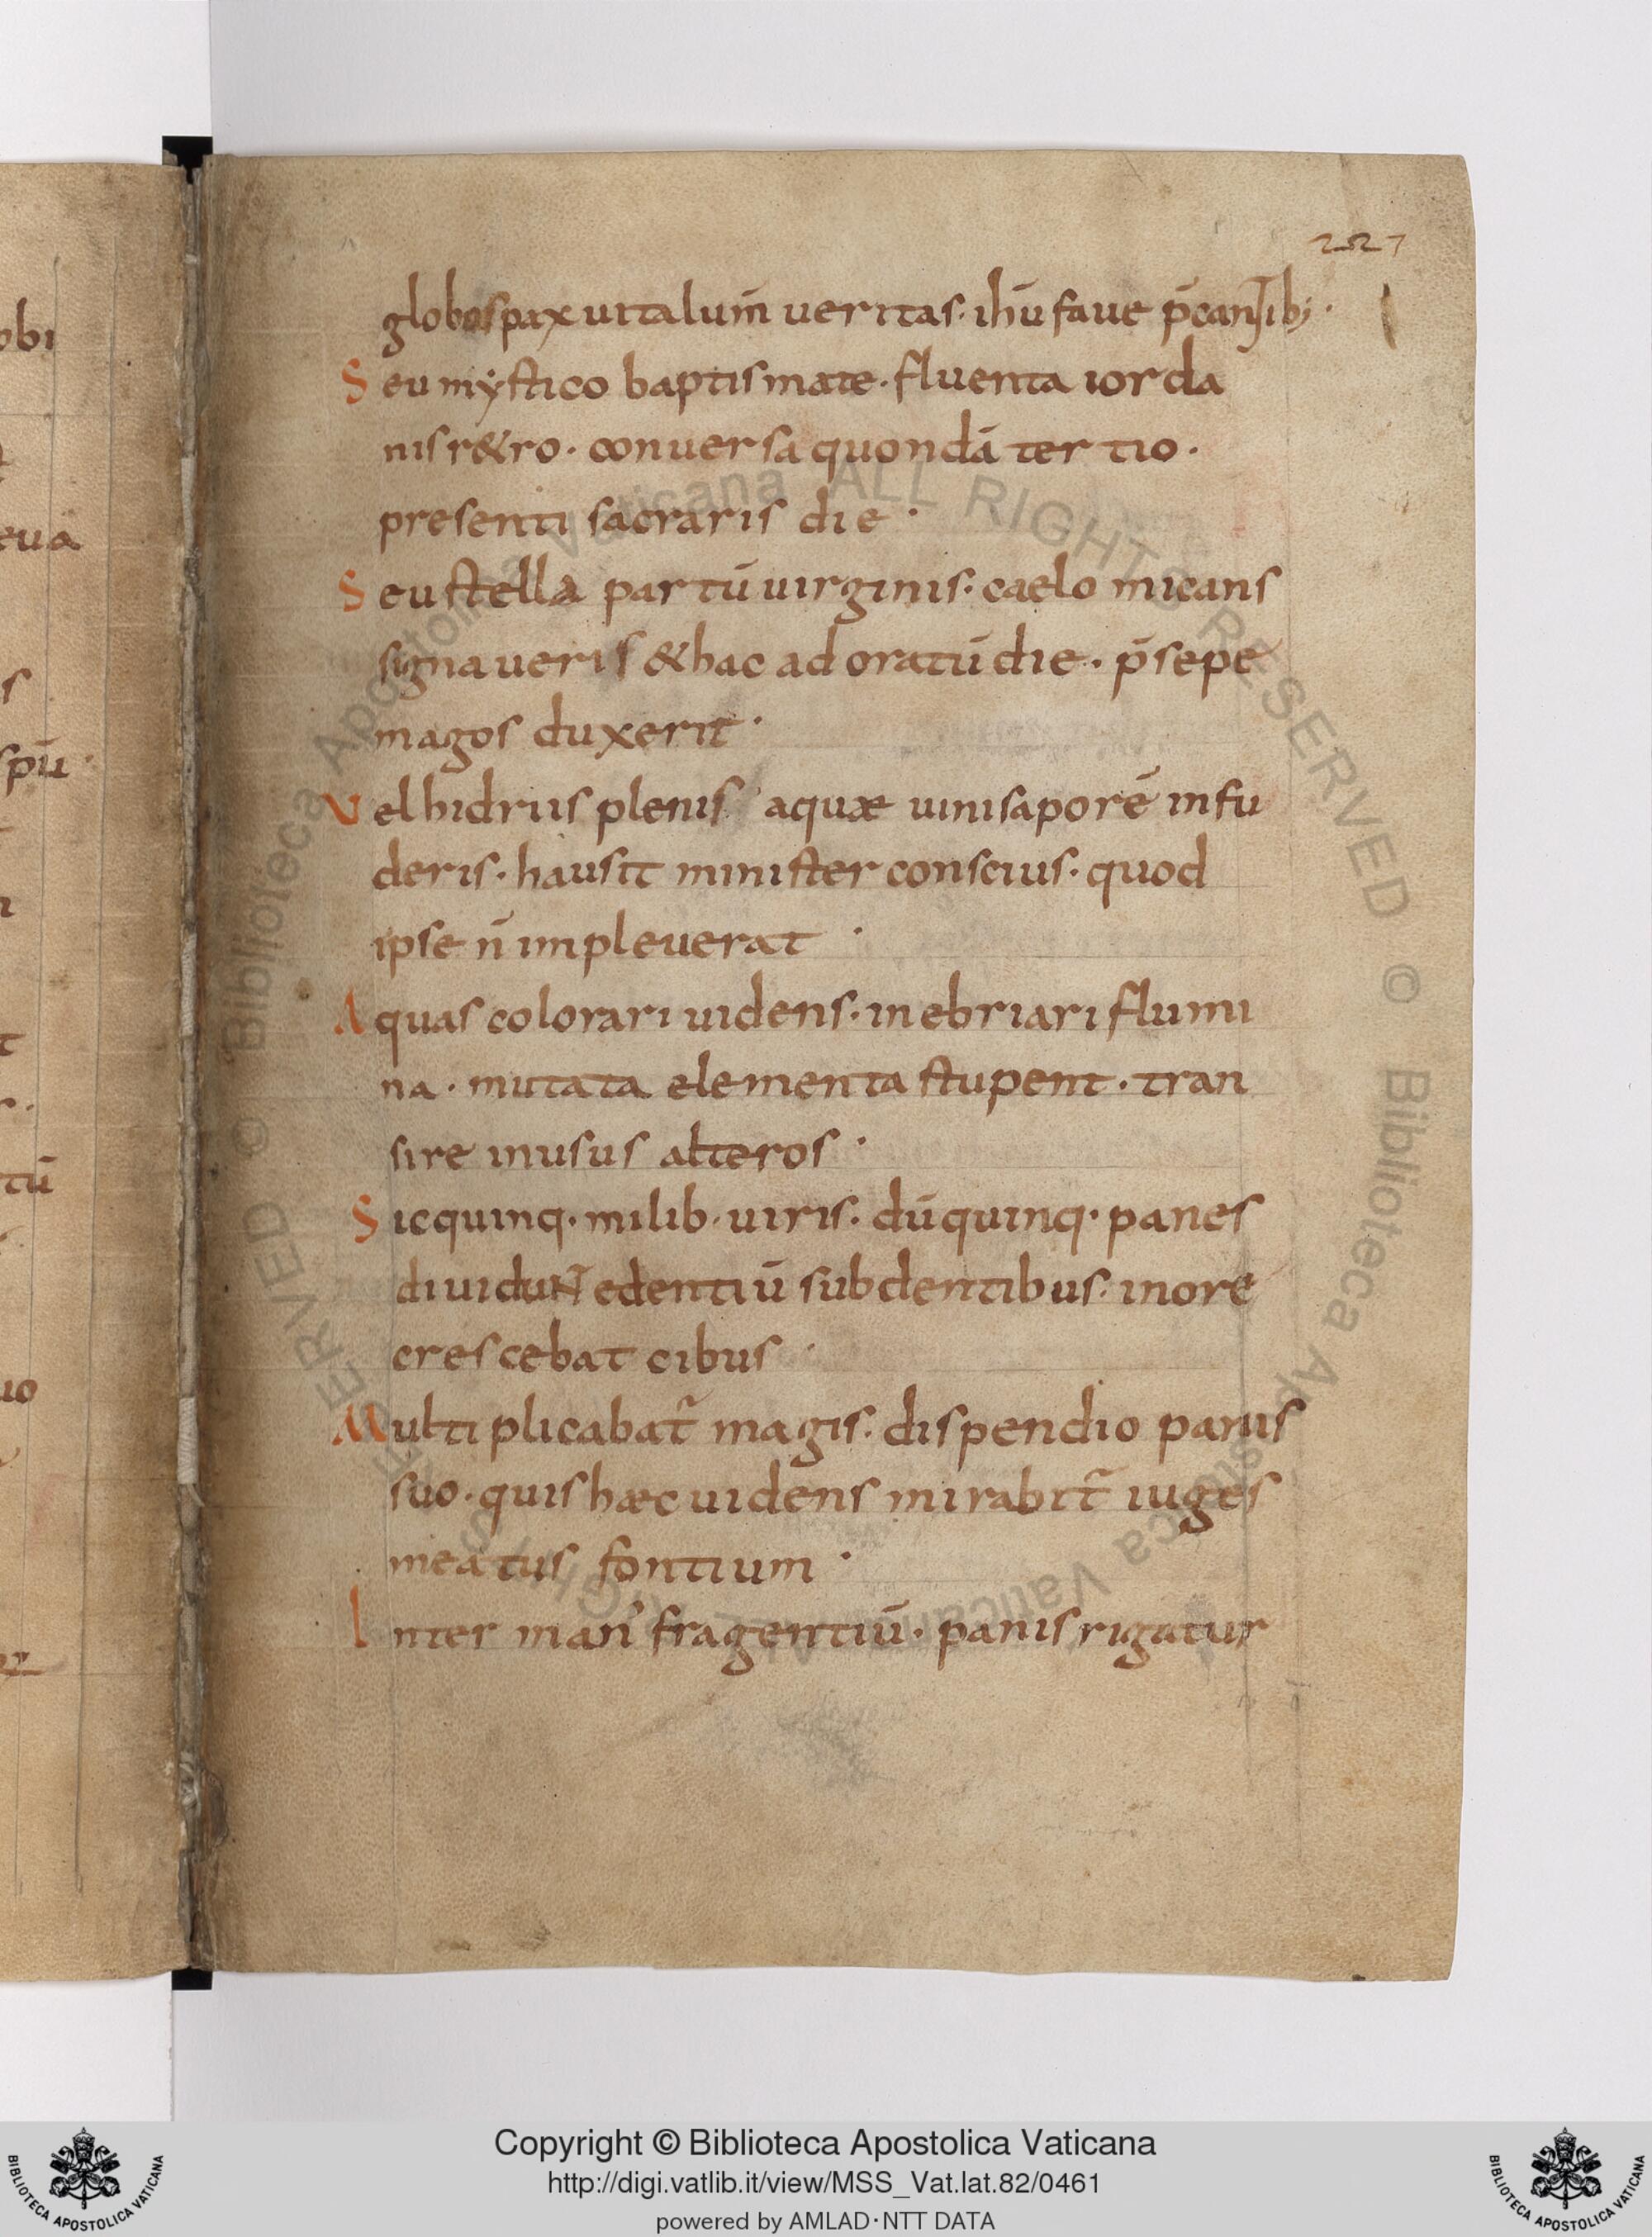 obi
eua
s
spū
tū
uo
227
globos pax uita lum̄ ueritas· ihū faue p̄cantib;·
Seu mẏstico baptismate· fluenta iorda
nis r&ro· conuersa quondā tertio·
presenti sacraris die·
Seu stella partū uirginis· caelo micans
signaueris & hac adoratū die· p̄sepe
magos duxerit·
Vel hidriis plenis aquæ uini saporē infu
deris· hausit minister conscius· quod
ipse n̄ impleuerat·
Aquas colorari uidens· inebriari flumi
na· mutata elementa stupent· tran
sire inusus alteros·
Sic quinq· milib· uiris· dū quinq· panes
diuidunt edentiū sub dentibus· inore
crescebat cibus·
Multiplicabat̄ magis· dispendio panis
suo· quis hæc uidens mirabit̄ iuges
meatus fontium·
Inter man̄ fragentiū· panis rigatur
© Biblioteca Apostolica Vaticana ALL RIGHTS RESERVED © Biblioteca Apostolica Vaticana ALL RIGHTS RESERVED
BIBLIOTECA APOSTOLICA VATICANA
Copyright © Biblioteca Apostolica Vaticana
http://digi.vatlib.it/view/MSS_Vat.lat.82/0461
powered by AMLAD·NTT DATA
BIBLIOTECA APOSTOLICA VATICANA